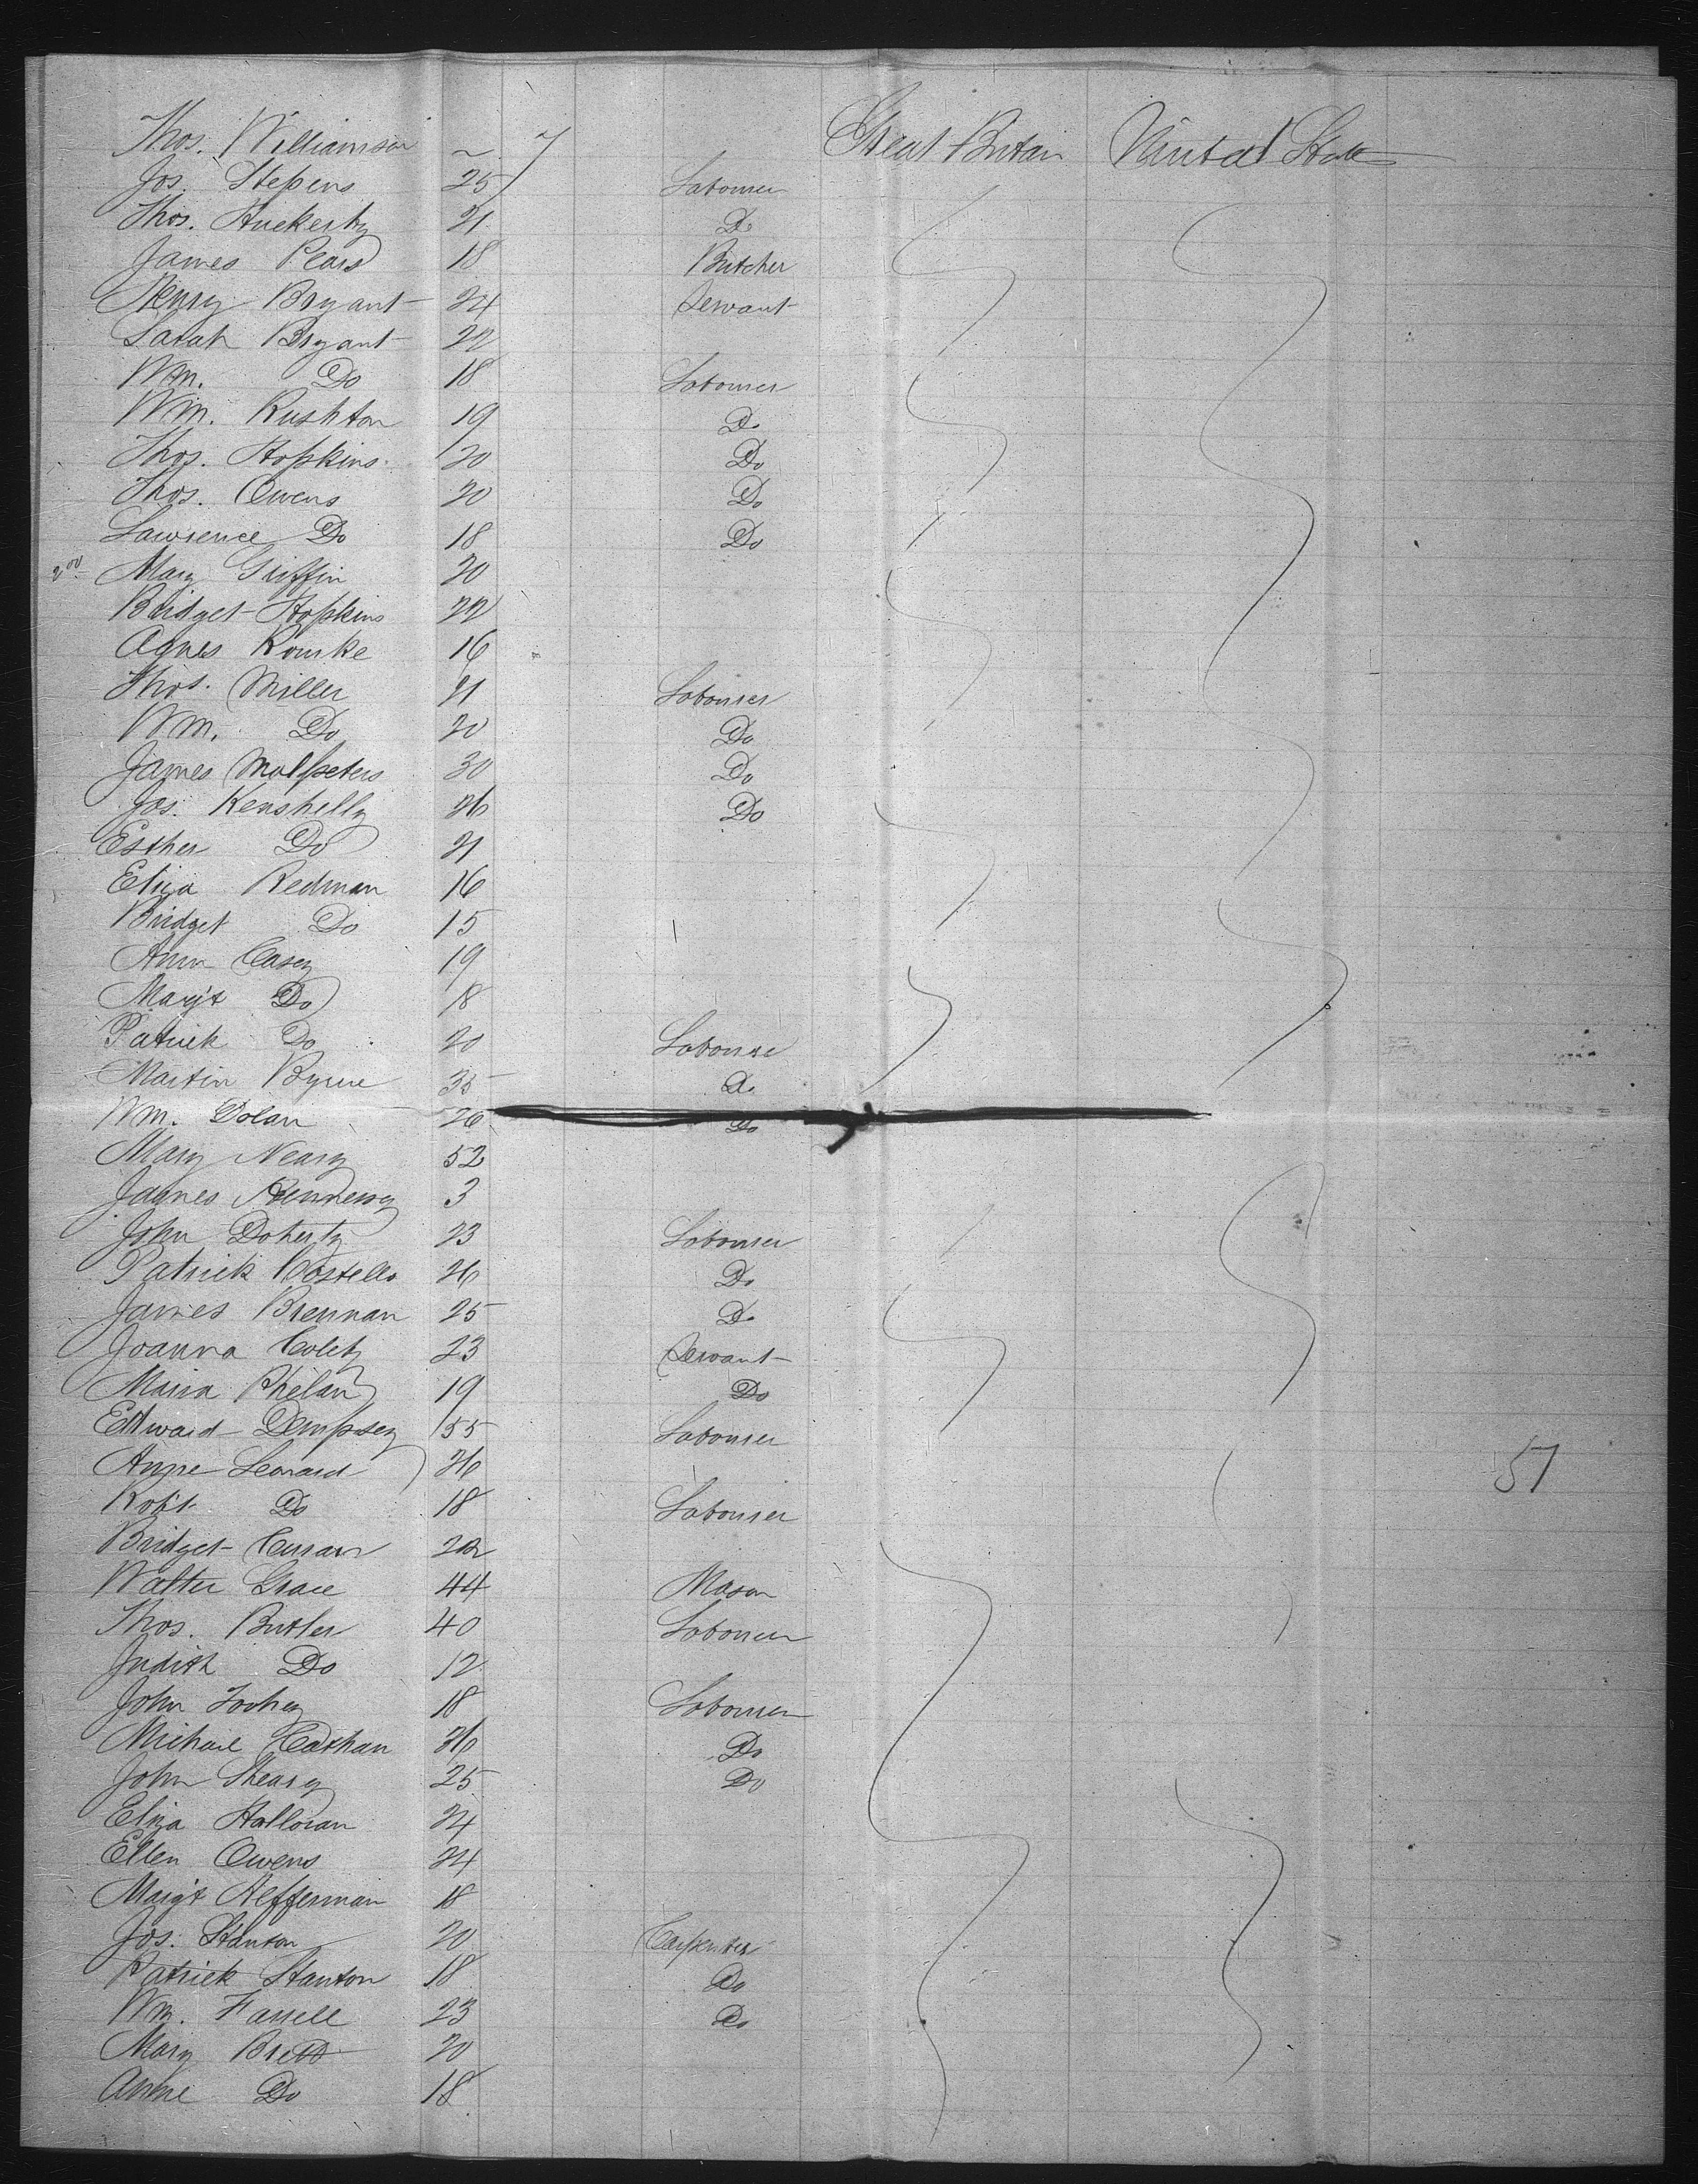 Thos. Williamson ~ 7 Great Britain United States
Jos. Stepens 25 Labourer
Thos. Huckerby 21 Do
James Pears 18 Butcher
Henry Bryant 24 Servant
Sarah Bryant 22
Wm. Do 18 Labourer
Wm. Rushton 19 Do
Thos. Hopkins 20 Do
Thos. Owens 20 Do
Lawrence Do 18 Do
Mary Griffin 20
Bridget Hopkins 22
Agnes Rourke 16
Thos. Miller 21 Labourer
Wm. Do 20 Do
James Malpeters 30 Do
Jos. Kenshelly 26 Do
Esther Do 21
Eliza Redman 16
Bridget Do 15
Ann Casey 19
Margt Do 18
Patrick Do 20 Labourer
Martin Byrne 35 Do
Wm. Dolan 26 Do
Mary Neary 52
James Hennessy 3
John Doherty 23 Labourer
Patrick Costello 26 Do
James Brennan 25 Do
Joanna 23 Servant
Maria Phelan 19 Do
Edward Dempsey 55 Labourer
Anne Leonard 26 51
Robt. Do 18 Labourer
Bridget Curran 22
Walter Grace 44 Mason
Thos. Butler 40 Labourer
Judith Do 12
John Toohey 18 Labourer
Michael 26 Do
John 25 Do
Eliza Halloran 24
Ellen Owens 24
Margt Hefferman 18
Jos. Stanton 20 Carpenter
Patrick Stanton 18 Do
Wm. Farrell 23 Do
Mary Brett 20
Anne Do 18